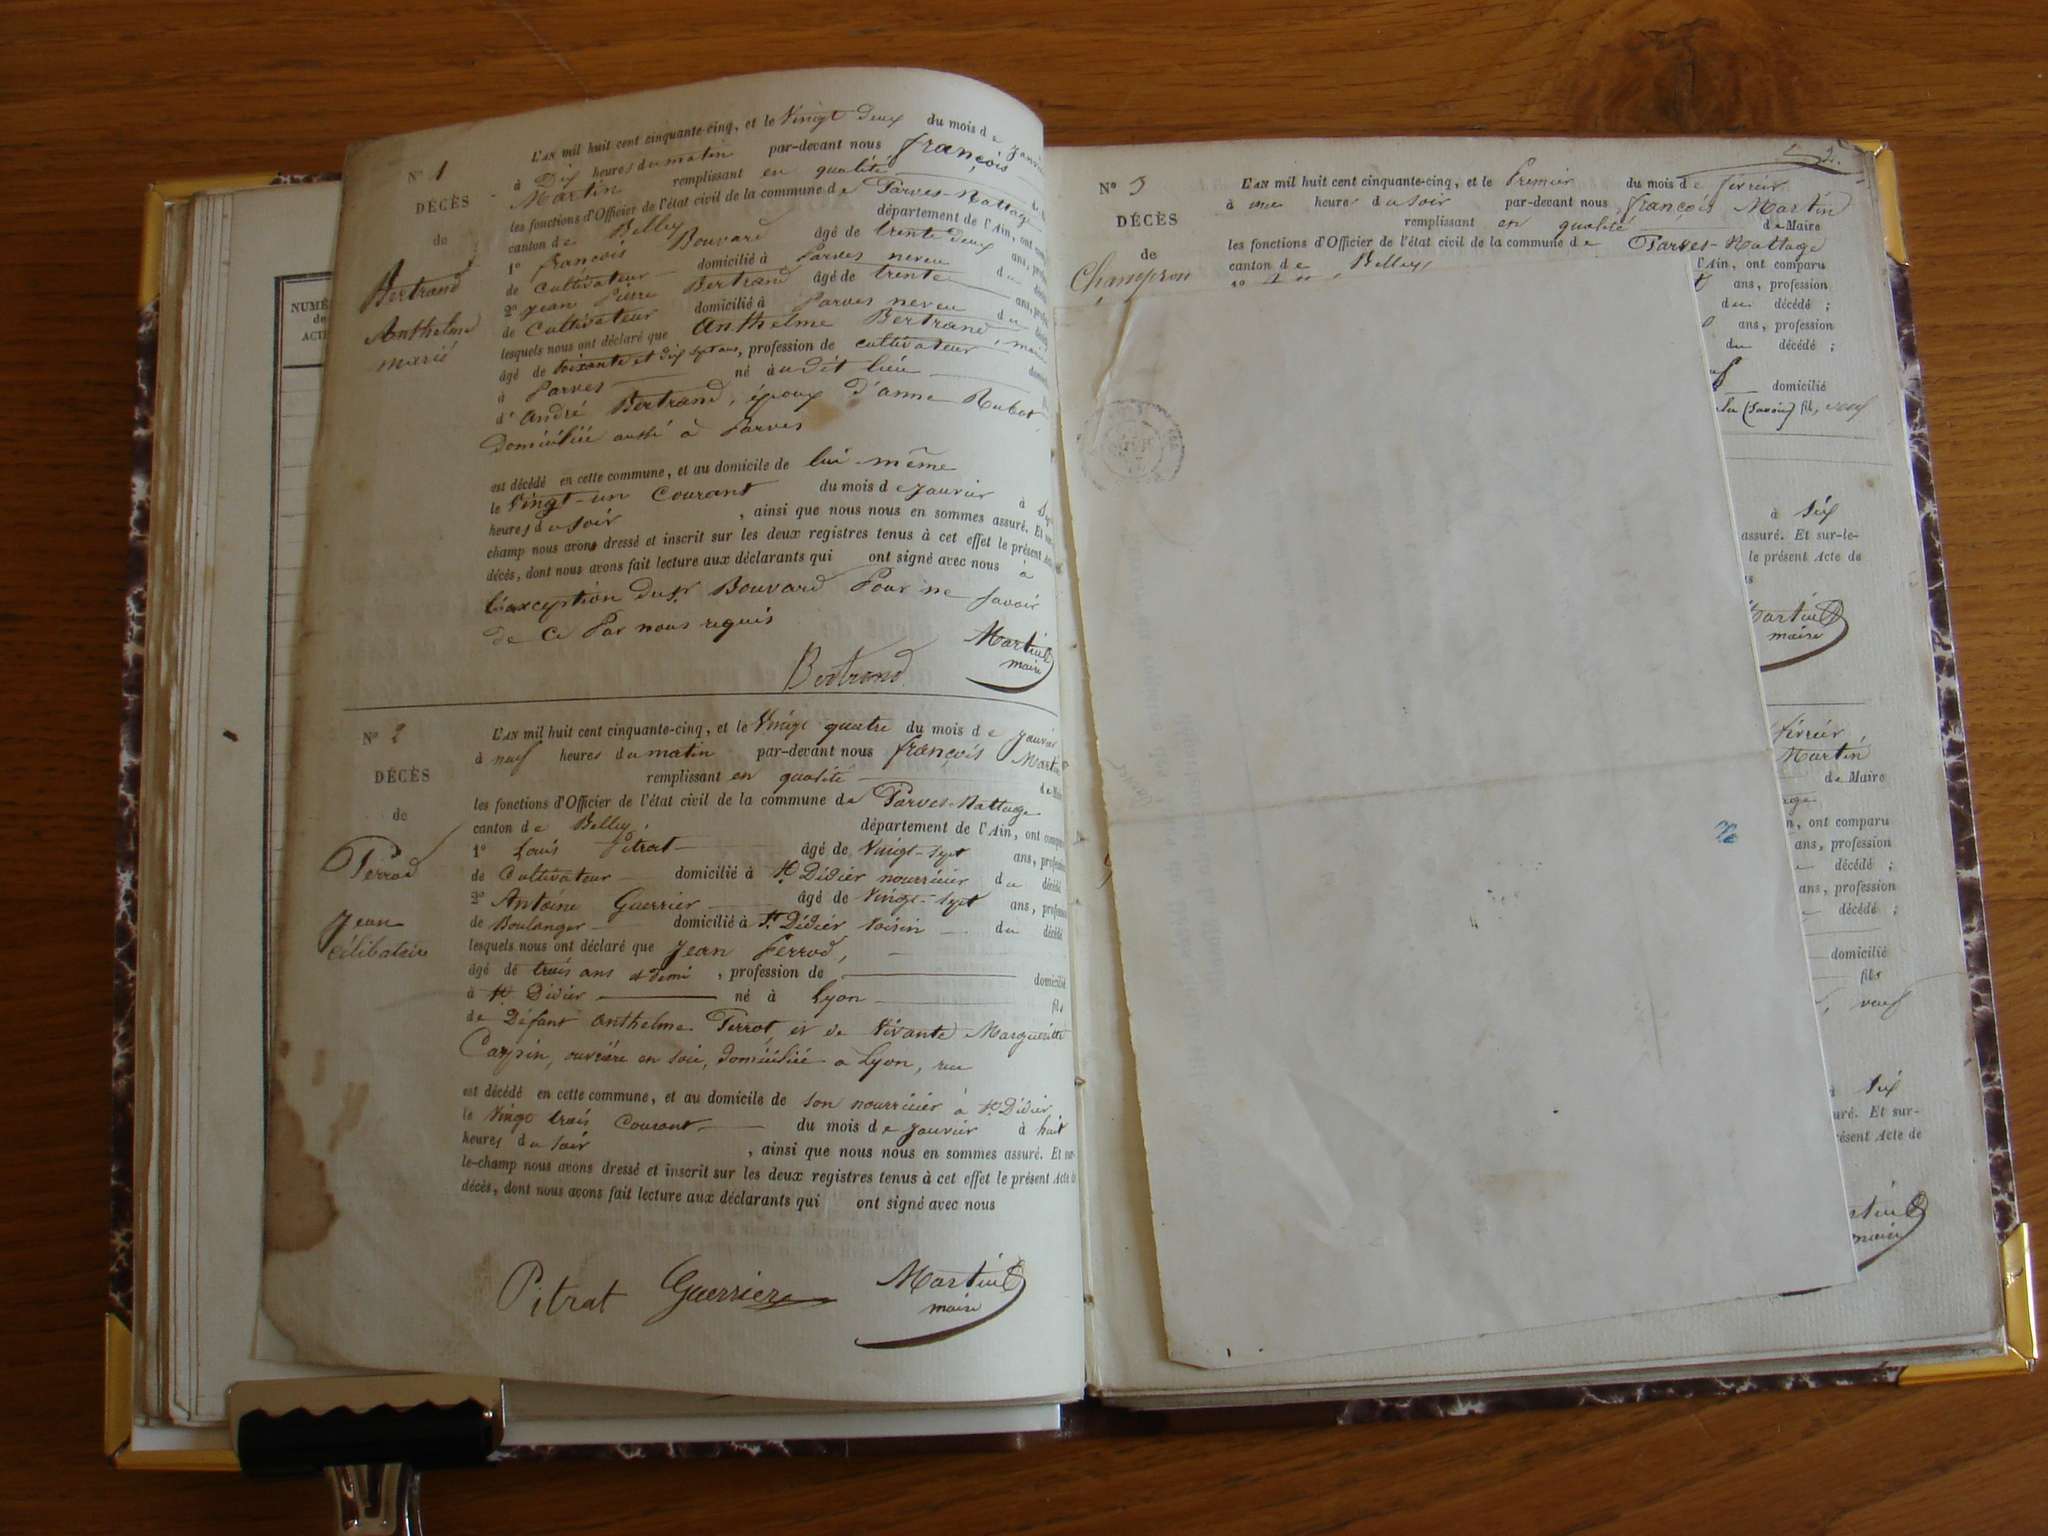 N° 1
DÉCÈS
de
Bertrand
Anthelme
marié
L'AN mil huit cent cinquante-cinq, et le Vingt deux du mois de janvier
à Dix heures du matin par-devant nous françois
Martin remplissant en qualité
les fonctions d'Officier de l'état civil de la commune de Parves-Nattage
canton de Belley département de l'Ain, ont
1° françois Bouvard âgé de trente deux ans,
de Cultivateur domicilié à Parves neveu du
2° jean Pierre Bertrand âgé de trente ans,
de Cultivateur domicilié à Parves neveu du
lesquels nous ont déclaré que Anthelme Bertrand,
âgé de soixante et dix sept ans, profession de cultivateur
à Parves né à u dit lieu
d'André Bertrand, époux d'anne Rubat,
Domiciliée aussi à Parves
est décédé en cette commune, et au domicile de lui-même
le Vingt-un Courant du mois de janvier à
heures du soir, ainsi que nous nous en sommes assuré. Et
champ nous avons dressé et inscrit sur les deux registres tenus à cet effet le présent
décès, dont nous avons fait lecture aux déclarants qui ont signé avec nous à
l'exception du Sr Bouvard Pour ne savoir
de Ce Par nous requis
Bertrand Martin
maire
N° 2
DÉCÈS
de
Perrod
Jean
célibataire
L'AN mil huit cent cinquante-cinq, et le Vingt quatre du mois de janvier
à neuf heures du matin par-devant nous françois Martin
remplissant en qualité de Maire
les fonctions d'Officier de l'état civil de la commune de Parves-Nattage
canton de Belley département de l'Ain, ont comparu
1° Louis Pitrat âgé de Vingt-sept ans, profession
de Cultivateur domicilié à St Didier nourricier du décédé
2° Antoine Guerrier âgé de Vingt-sept ans, profession
de Boulanger domicilié à St Didier voisin du décédé
lesquels nous ont déclaré que Jean Perrod,
âgé de trois ans et demi, profession de domicilié
à St Didier né à Lyon fils
de Défunt Anthelme Perrot, et de Vivante Margueritte
Carpin, ouvrière en soie, domiciliée à Lyon, rue
est décédé en cette commune, et au domicile de son nourricier à St Didier
le Vingt trois Courant du mois de janvier à huit
heures du soir, ainsi que nous nous en sommes assuré. Et sur-
le-champ nous avons dressé et inscrit sur les deux registres tenus à cet effet le présent Acte de
décès, dont nous avons fait lecture aux déclarants qui ont signé avec nous
Pitrat Guerrier Martin
maire
NUMÉ
de
ACT
2.
N° 3
DÉCÈS
de
L'AN mil huit cent cinquante-cinq, et le Premier du mois de février
à heures du soir par-devant nous françois Martin
remplissant en qualité de Maire
les fonctions d'Officier de l'état civil de la commune de Parves-Nattage
canton de Belley l'Ain, ont comparu
ans, profession
du décédé ;
ans, profession
du décédé ;
domicilié
(Savoie) fils, veuf
à six
assuré. Et sur-le-
le présent Acte de
Martin
maire
février
Martin
de Maire
n, ont comparu
ans, profession
décédé ;
ans, profession
décédé ;
domicilié
fils
veuf
six
uré. Et sur-
résent Acte de
maire